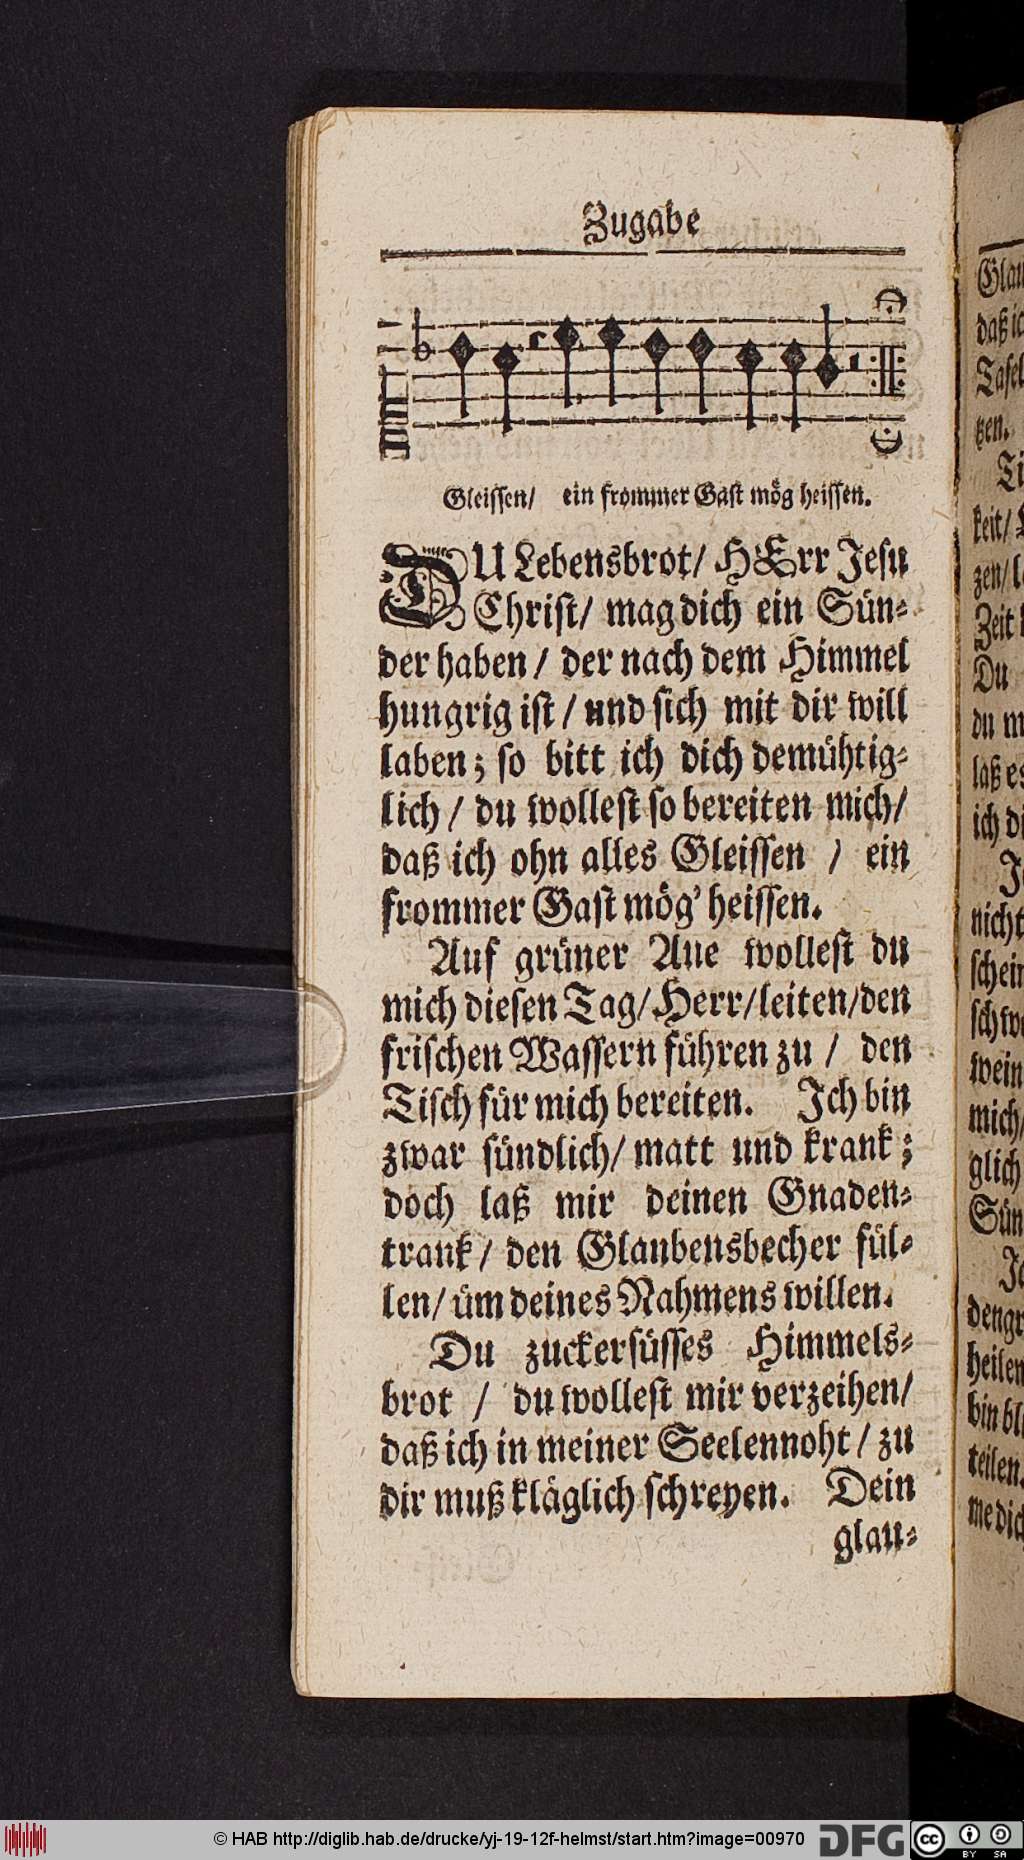 Zugabe
Gleissen/ ein frommer Gast mög heissen.
DU Lebensbrot/ HErr Jesu
Christ/ mag dich ein Sün-
der haben / der nach dem Himmel
hungrig ist / und sich mit dir will
laben; so bitt ich dich demühtig-
lich / du wollest so bereiten mich/
daß ich ohn alles Gleissen / ein
frommer Gast mög' heissen.
Auf grüner Aue wollest du
mich diesen Tag/ Herr/ leiten/ den
frischen Wassern führen zu / den
Tisch für mich bereiten. Ich bin
zwar sündlich/ matt und krank;
doch laß mir deinen Gnaden-
trank / den Glaubensbecher fül-
len/ üm deines Nahmens willen.
Du zuckersüsses Himmels-
brot / du wollest mir verzeihen/
daß ich in meiner Seelennoht / zu
dir muß kläglich schreyen. Dein
glau-
Glau
daß ic
Tafel
tzen.
Ti
keit/
zen/ l
Zeit
Du
du m
laß es
ich di
nicht
schein
schwe
wein
mich/
glich
Sün
dengr
heilen
bin bli
teilen.
me dich
© HAB http://diglib.hab.de/drucke/yj-19-12f-helmst/start.htm?image=00970
DFG
cc
BY SA